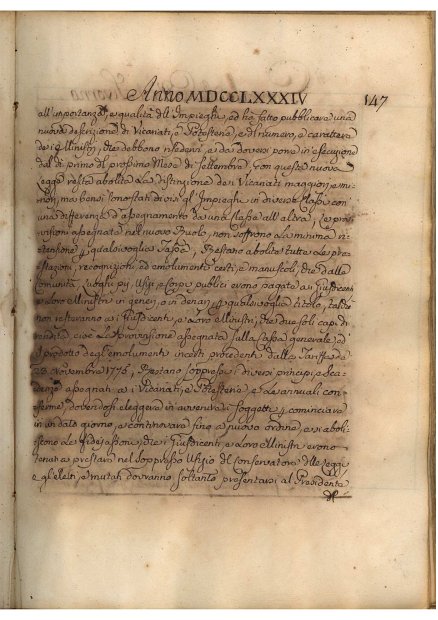 Anno MDCCLXXXIV 147
all'importanza, e qualità dll Impieghi, ad ha fatto pubblicare una
nuova descrizione di Vicariati, e Potesterie, e dl numero, e carattere
dei Ministri, che debbono risedervi, e da doversi porre in esecuzione
dal dì primo del prossimo Mese di Settembre. Con questa nuova
Legge resta abolita la distinzione dei Vicariati maggiori, e mi-
nori, ma bensì sono stati divisi gl'Impieghi in diverse Classe con
una differenza d'assegnamento da una classe all'altra, le prov-
visioni assegnate nel nuovo Ruolo, non soffrono la minima ri-
tenzione p qualsivoglia Tassa, Restano abolite tutte le pre-
stazioni, recognizioni, ed emolumenti certi, e manuscoli, che dalle
Comunità, Luoghi py, Usizi, e Corpi publici erono pagate ai Giusdicenti
e loro Ministri in generi, o in denari, p qualsivoglia titolo, talchè
non resteranno ai Giusdicenti, e loro Ministri, che due soli capi di
rendita cioè la Provvisione assegnata sulla Cassa generale, ed
il prodotto degl'emolumenti incerti procedenti dalla Tariffa de
Novembre Restano soppressi i diversi principj, e sca-
denze assegnati ai Vicariati, e Potesterie e le annuali con-
ferme, dovendosi eleggere in avvenire i soggetti p cominciare
in un dato giorno, e continovare fino a nuovo ordine, e si abolis-
cono le fidejussioni, che i Giusdicenti, e loro Ministri erono
tenuti a prestare nel soppresso Ufizio dl Conservatore dlle Leggi
e gl'eletti, e mutati dovranno soltanto presentarsi al Presidente